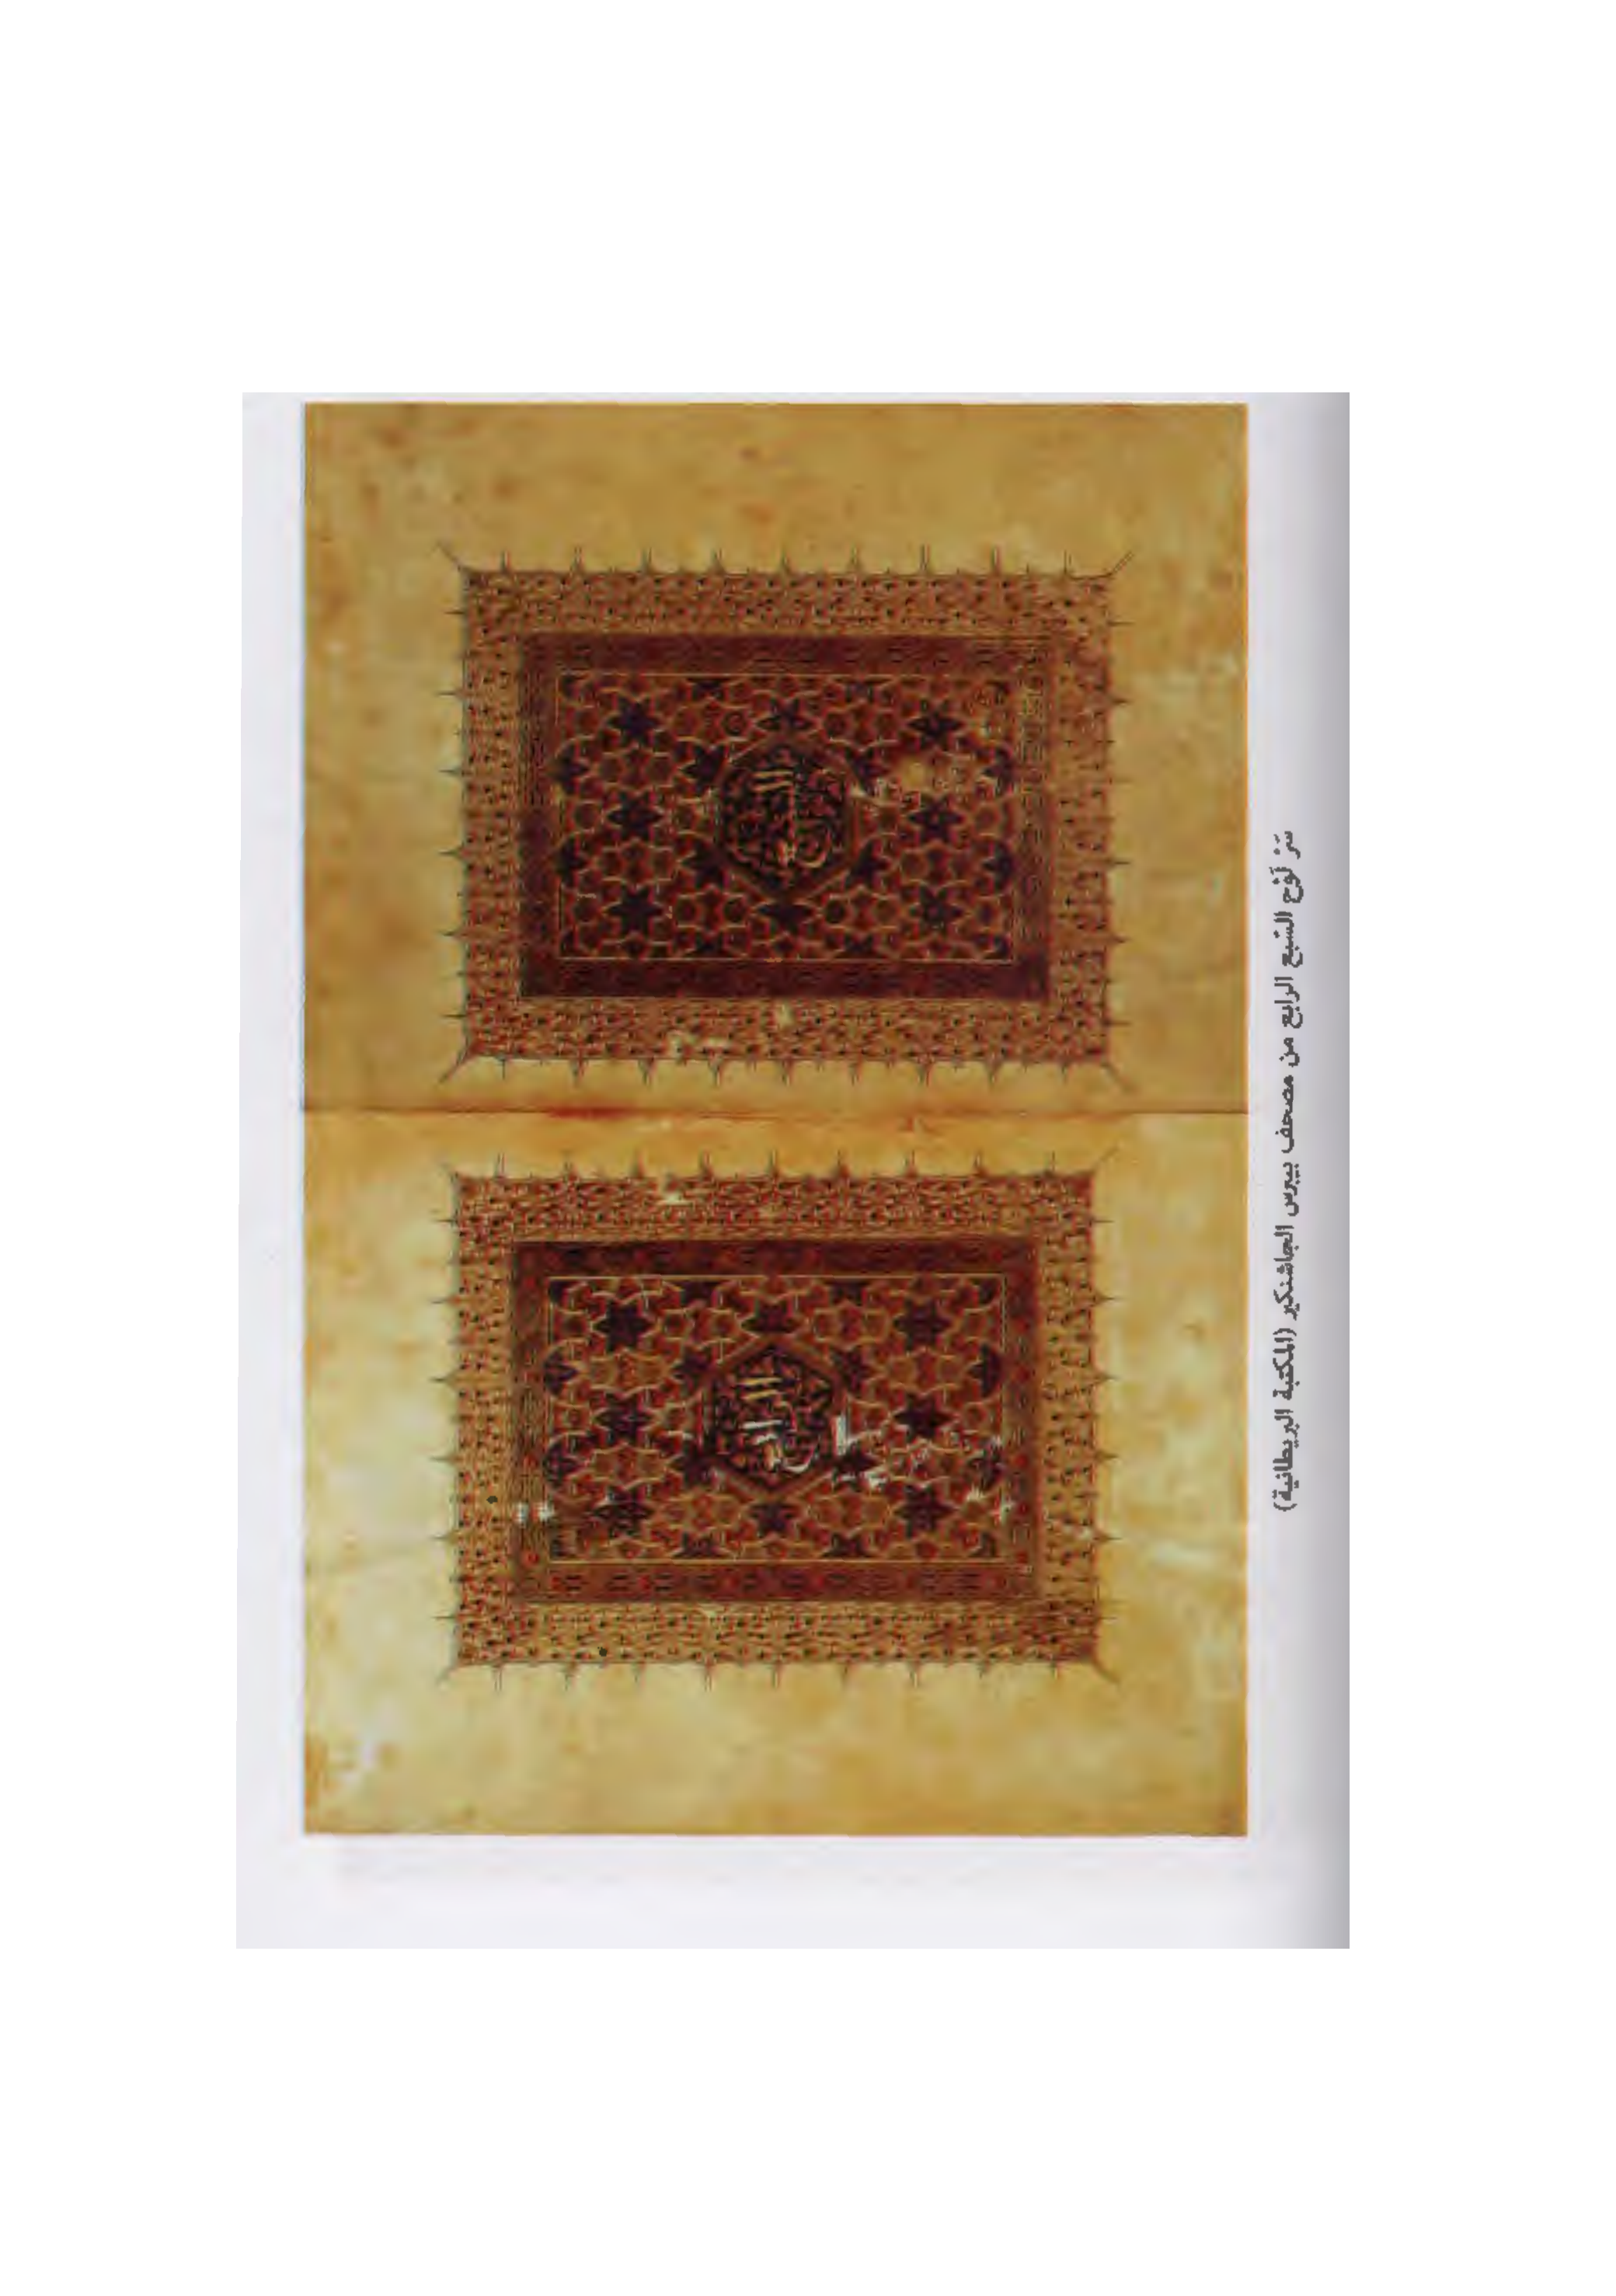 سَرْ لَوْح السّبع الرابع من مصحف بيبرس الجاشنكير (المكتبة البريطانية)